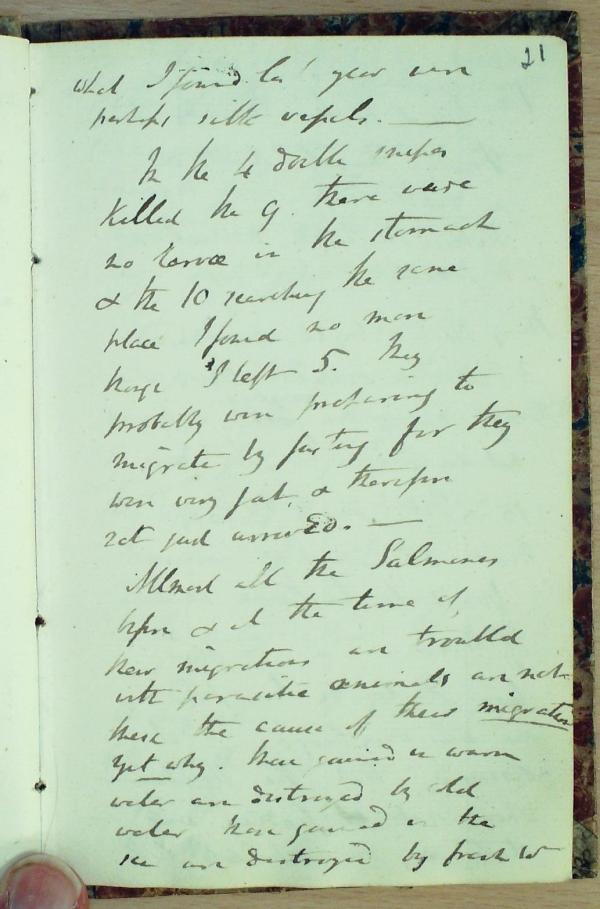 21
what I found last year were
perhaps silk vessels. —
In the 4 double snipes
killed the 9. there were
no larvae in the stomach
& the 10 searching the same
place I found no more
tho I left 5. they
probably were preparing to
migrate by fasting for they
were very fat, & therefore
not just arrived. —
Allmost all the Salmones
before & at the time of
their migrations are troubled
with parasitic animals are not
these the cause of their migration
yet why. those gained in warm
water are destroyed by cold
water those gained in the
sea are destroyed by fresh W